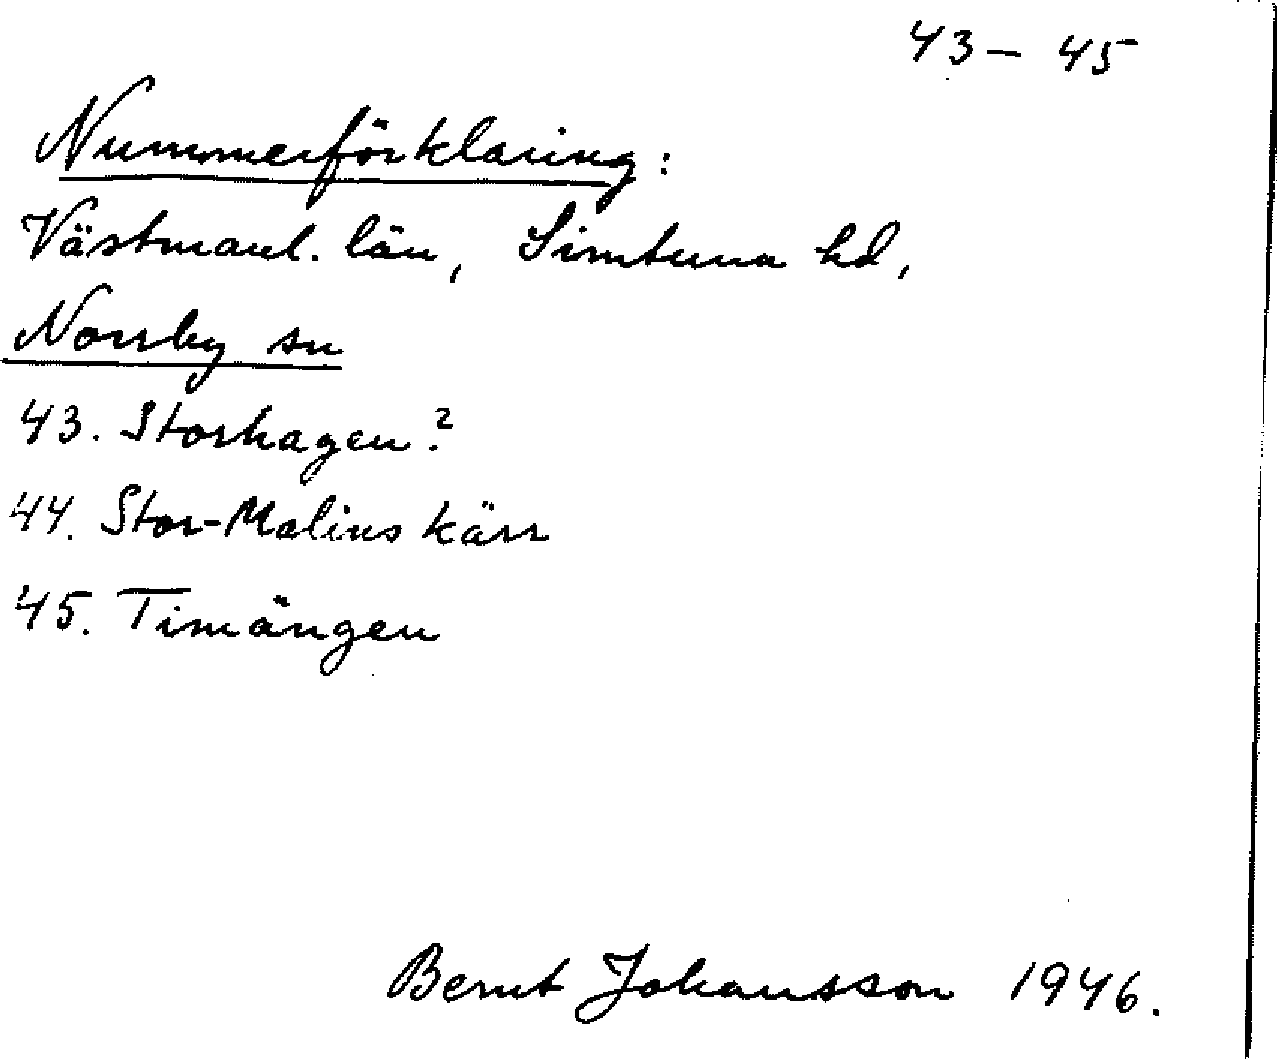 43 - 45
Nummerförklaring:
Västmanl. län, Simtuna hd,
Norrby sn
43. Storhagen?
44. Stor-Malins kärr
45. Timängen
Bernt Johansson 1946.